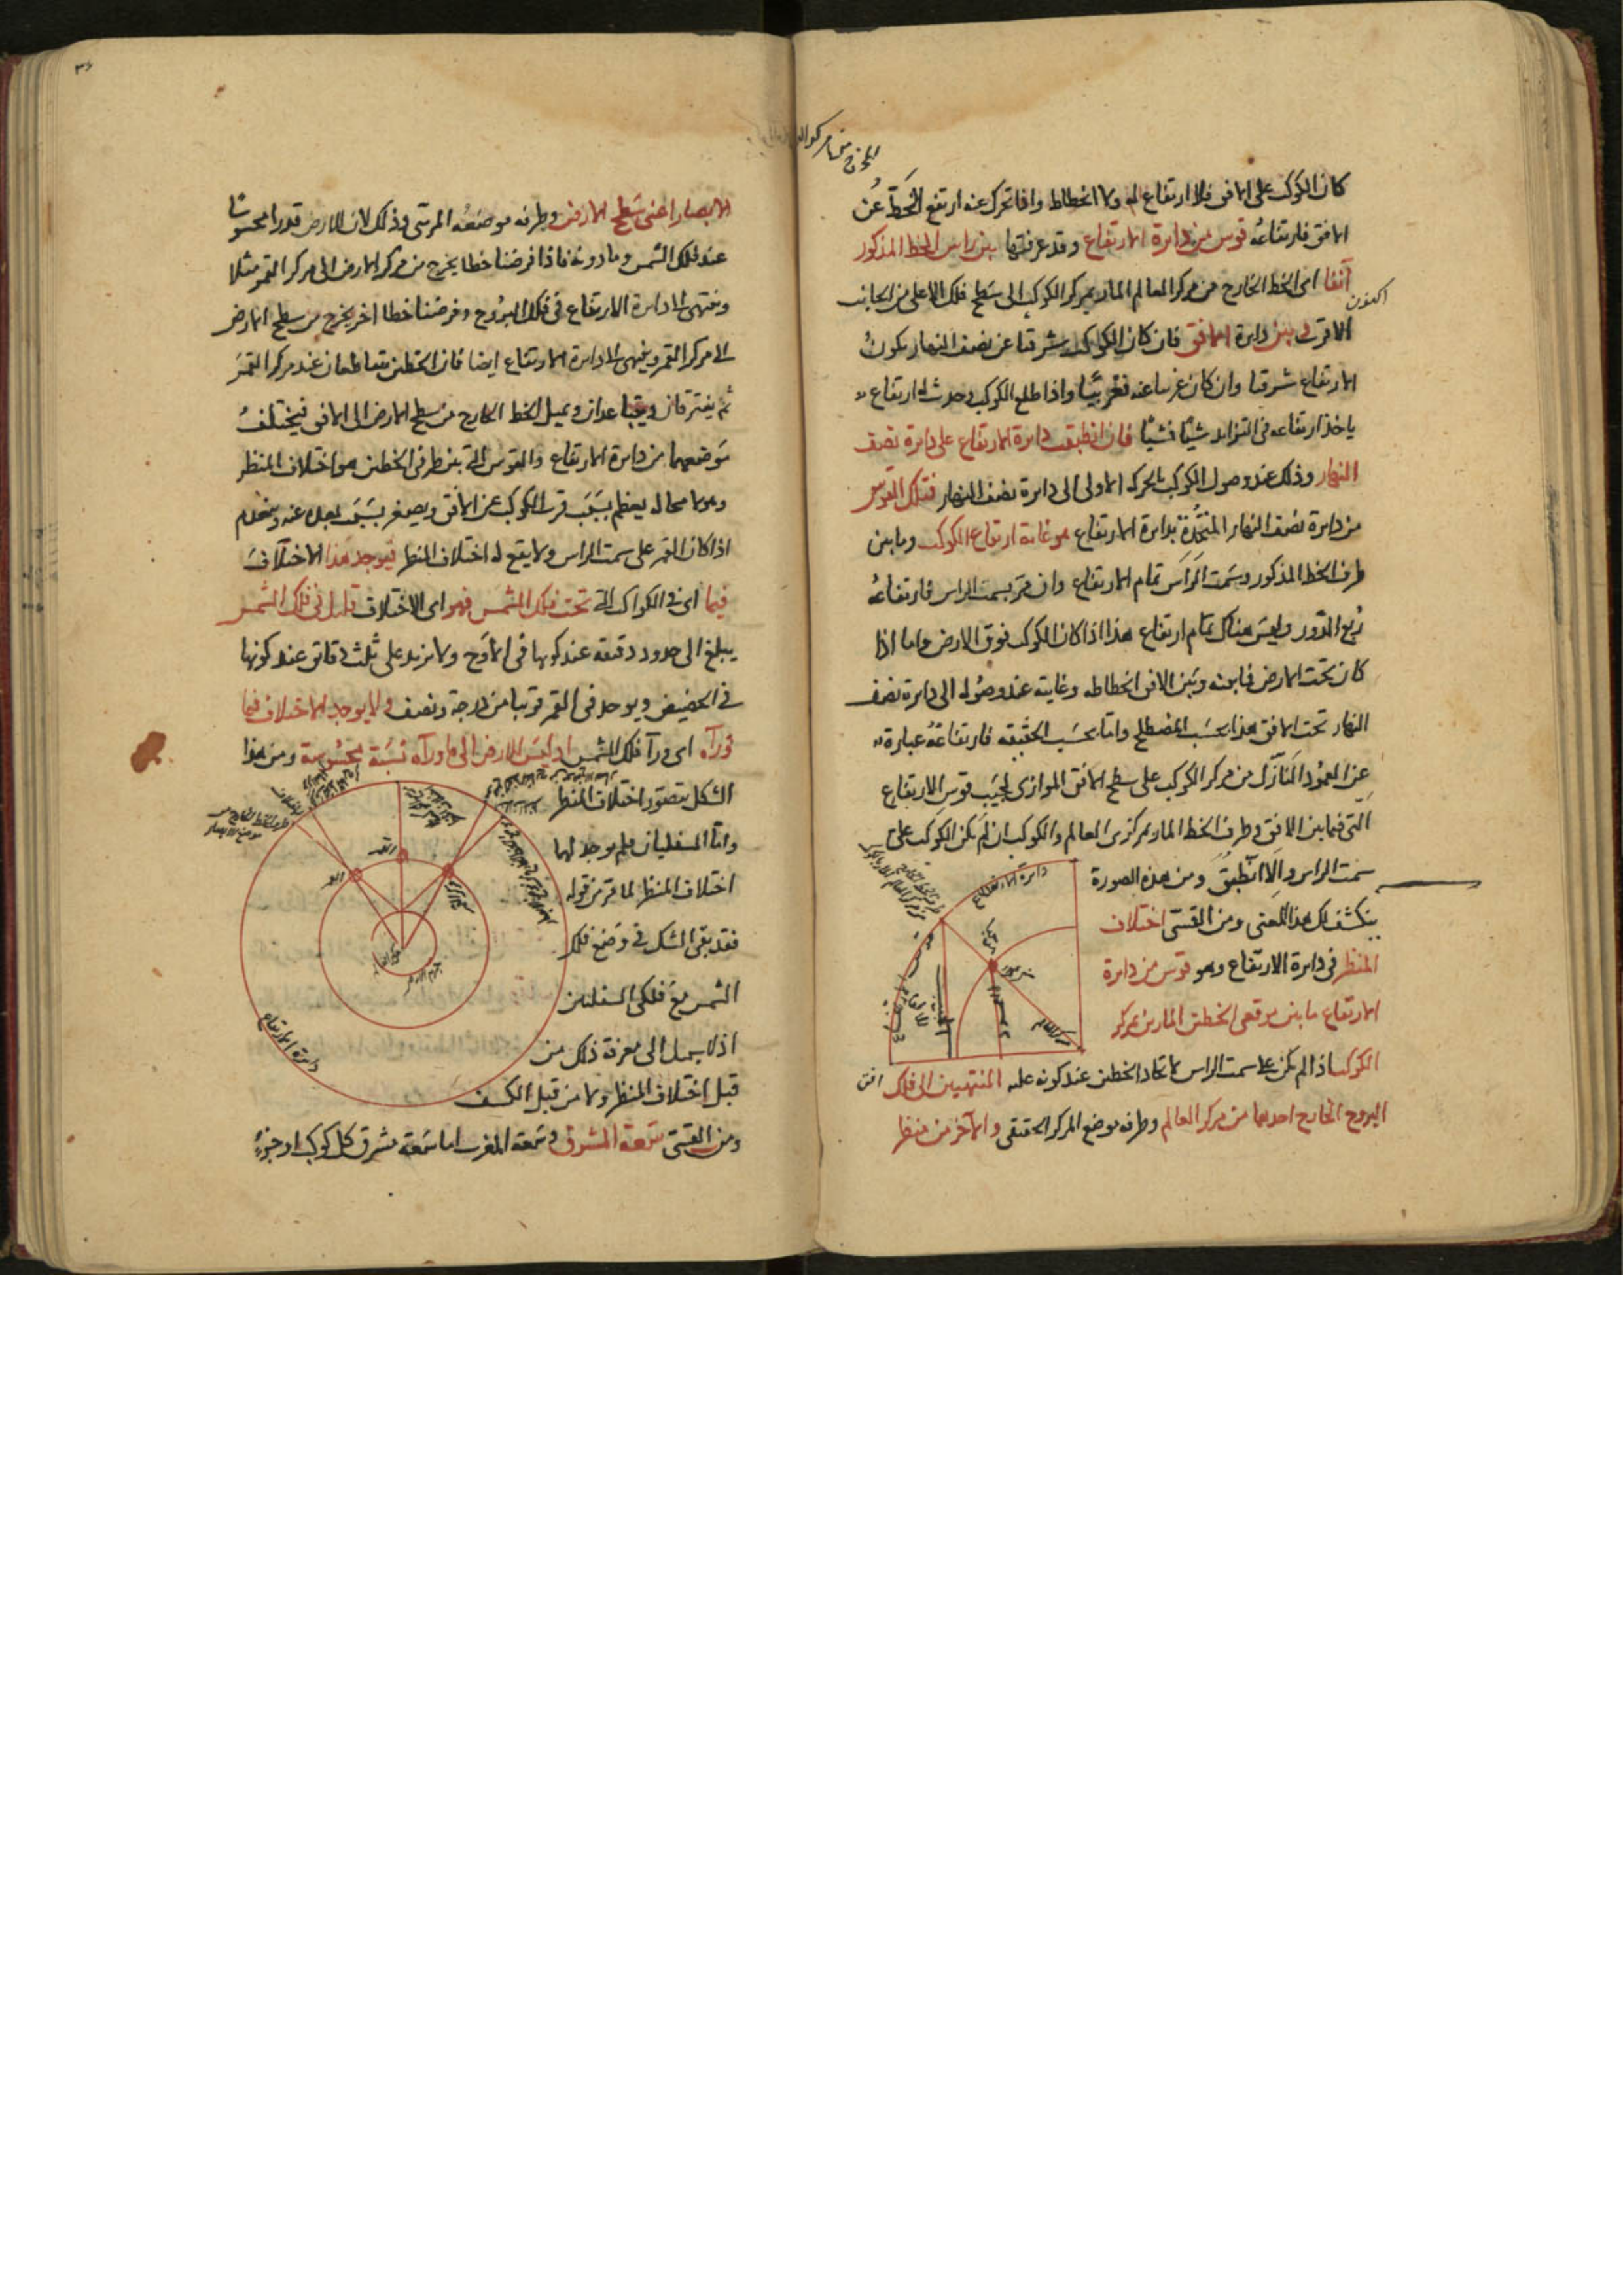 كان الكوكب على الافق فلا ارتفاع له ولا انحطاط واذا تحرك عنه ارتفع الخط عن
الافق فارتفاعه قوس من دايرة الارتفاع وقد عرفتها بين راس الخط المذكور
آنفا اى الخط الخارج من مركز العالم المار بمركز الكوكب الى سطح فلك الاعلى من الجانب
الاقرب وبين دايرة الافق فان كان الكوكب شرقيا عن نصف النهار يكون
الارتفاع شرقيا وان كان غربيا عنه فغربيًا واذا طلع الكوكب وحدث له ارتفاع
ياخذ ارتفاعه فى التزايد شيئا فشيئا فان انطبقت دايرة الارتفاع على دايرة نصف
النهار وذلك عند وصول الكوكب بالحركة الاولى الى دايرة نصف النهار فتلك القوس
من دايرة نصف النهار المتحدة بدايرة الارتفاع هو غاية ارتفاع الكوكب وما بين
طرف الخط المذكور وسمت الراس تمام الارتفاع وان مر بسمت الراس فارتفاعه
ربع الدور وليس هناك تمام ارتفاع هذا اذا كان الكوكب فوق الارض واما اذا
كان تحت الارض فما بينه وبين الافق انحطاطه وغايته عند وصوله الى دايرة نصف
النهار تحت الافق هذا بحسب المصطلح واما بحسب الحقيقة فارتفاعه عبارة
عن العمود النازل من مركز الكوكب على سطح الافق الموازى لجيب قوس الارتفاع
التى فيما بين الافق وطرف الخط المار بمركزى العالم والكوكب ان لم يكن الكوكب على
سمت الراس والا انطبق ومن هذه الصورة
ينكشف لك هذا المعنى ومن القسى اختلاف
المنظر فى دايرة الارتفاع وهو قوس من دايرة
الارتفاع ما بين موقعى الخطين المارين بمركز
الكوكب اذا لم يكن على سمت الراس لاتحاد الخطين عند كونه عليه المنتهيين الى فلك
البروج الخارج احدهما من مركز العالم وطرفه موضع المركز الحقيقى والآخر من منظر
دايرة الارتفاع
مركز العالم
افق
الابصار اعنى سطح الارض وطرفه موضعه المرئى وذلك لان للارض قدرا محسوسا
عند فلك الشمس وما دونه فاذا فرضنا خطا يخرج من مركز الارض الى مركز القمر مثلا
وينتهى الى دايرة الارتفاع فى فلك البروج وفرضنا خطا اخر يخرج من سطح الارض
الى مركز القمر وينتهى الى دايرة الارتفاع ايضا فان الخطين يتقاطعان عند مركز القمر
ثم يفترقان ويتباعدان ويميل الخط الخارج من سطح الارض الى الافق فيختلف
موضعهما من دايرة الارتفاع والقوس التى بين طرفى الخطين هو اختلاف المنظر
وهو لا محالة يعظم بسبب قرب الكوكب من الافق ويصغر بسبب بعده عنه وينعدم
اذا كان القمر على سمت الراس ولا يقع له اختلاف المنظر فيوجد هذا الاختلاف
فيما اى فى الكواكب التى تحت فلك الشمس فهو اى الاختلاف قليل فى فلك الشمس
يبلغ الى حدود دقيقة عند كونها فى الاوج ولا يزيد على ثلث دقائق عند كونها
فى الحضيض ويوجد فى القمر قريبا من درجة ونصف ولا يوجد الاختلاف فيما
ورآه اى ورآ فلك الشمس اذ ليس للارض الى ما ورآه نسبة محسوسة ومن هذا
الشكل يتصور اختلاف المنظر
واما السفليان فلم يوجد لهما
اختلاف المنظر لما مر من قوله
فقد بقى الشك فى وضع فلك
الشمس مع فلكى السفليين
اذ لا سبيل الى معرفة ذلك من
قبل اختلاف المنظر ولا من قبل الكسف
ومن القسى سعة المشرق وسعة المغرب اما سعة مشرق كل كوكب او جزء
القمر
القمر
دايرة الارتفاع